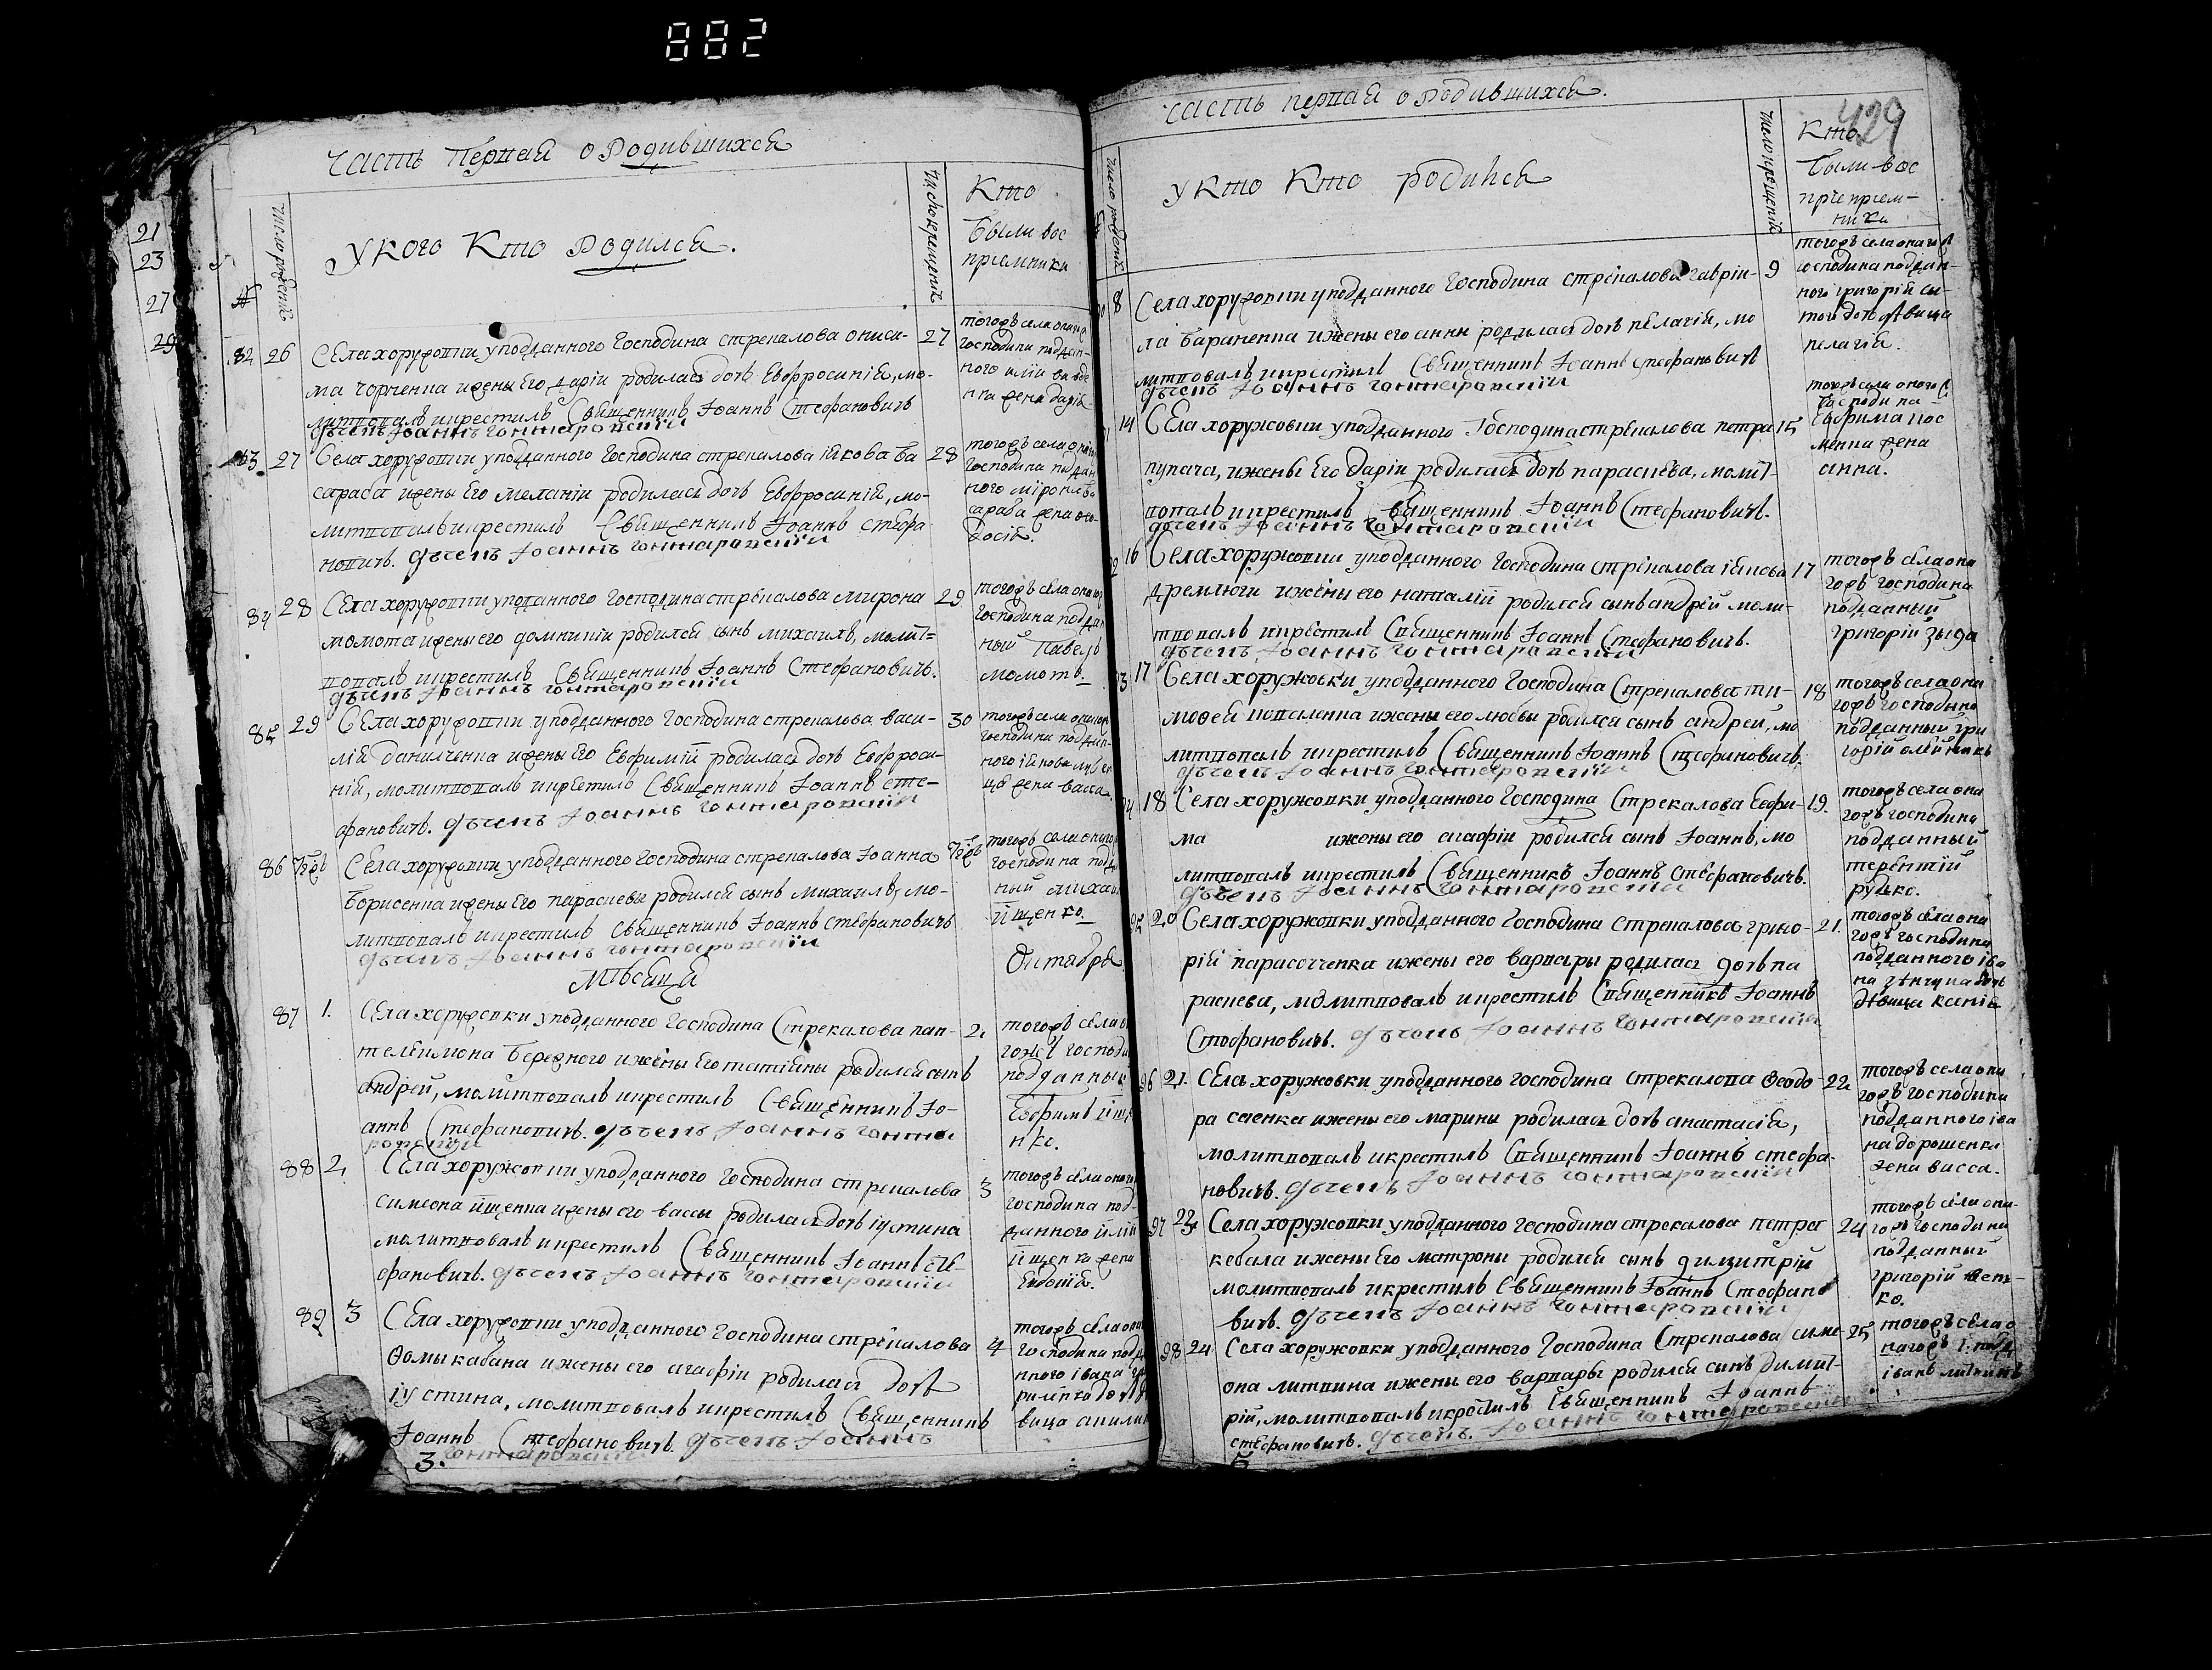 882
Часть Первая о Родившихся
21
23
27
29
№
Число рождений
У кого Кто Родился.
Число крещений
Кто
были вос
приемники
82 26
Села хоружовки у подданного Господина стрекалова описи-
ма чорненка и жены Его, дарiи родилась дочь Евфросинiя, мо-
литвовалъ и крестилъ Священникъ Iоаннъ Стефановичъ
дьячекъ Iоаннъ гонтаровскiй
27
тогожъ села оного
господина поддан-
ного
жена дарiя
83 27
Села хоружовки у подданного Господина стрекалова iякова ба
сараба жены Его меланiи родилась дочь Евфросинiя, мо-
литвовалъ и крестилъ Священникъ Iоаннъ стефа
новичъ. дьячекъ Iоаннъ гонтаровскiй
28
тогожъ села оного
господина поддан
ного мирона ба
сараба жена фео-
досiя.
84 28
Села хоружовки у подданного Господина стрекалова мирона
момота и жены его домникiи родился сынъ михаилъ, молит=
вовалъ и крестилъ Священникъ Iоаннъ Стефановичъ.
дьячекъ Iоаннъ гонтаровскiй
29
тогожъ села оного
господина поддан
ный Павелъ
момотъ.
85 29
Села хоружовки у подданного Господина стрекалова васи-
лiя данильченка и жены Его Евфимiи родилась дочь Евфроси-
нiя, молитвовалъ и крестилъ Священникъ Iоаннъ сте-
фановичъ. дьячекъ Iоаннъ гонтаровскiй
30
тогожъ села оного
господина поддан-
ного iякова
жена васса.
86
Села хоружовки у подданного Господина стрекалова Iоанна
борисенка и жены Его параскевы родился сынъ михаилъ, мо-
литвовалъ и крестилъ Священникъ Iоаннъ стефановичъ
дьячекъ Iоаннъ гонтаровскiй
тогожъ села оного
господина подда
ный михаи
йщенко.
Мѣсяца
Октября
87 1.
Села хоружовки у подданного Господина Стрекалова пан-
телеимона бережного и жены Его татiяны родился сынъ
андрей, молитвовалъ и крестилъ Священникъ Iо-
аннъ Стефановичъ. дьячекъ Iоаннъ гонта
ровскiй
2.
тогожъ села о
гожъ господи
подданный
Ефимъ йще
нко.
88 2.
Села хоружовки у подданного Господина стрекалова
симеона йщенка и жены его вассы родилась дочь iустина
молитвовалъ и крестилъ Священникъ Iоаннъ сте-
фановичъ. дьячекъ Iоаннъ гонтаровскiй
3
тогожъ села оного
господина под-
данного илiи
йщенка жена
Евдокiя.
89 3
Села хоружовки у подданного Господина стрекалова
Ѳомы кабана и жены его агафiи родилась дочь
iустина, молитвовалъ и крестилъ Священникъ
Iоаннъ Стефановичъ. дьячекъ Iоаннъ
гонтаровскiй
4
тогожъ села оно
Господина подда
нного iвана
дочь дѣ
вица акили
3.
Часть первая о Родившихся.
429
Число рождений
У Кто Кто родился
Число крещений
Кто
были вос
прiемъ-
ники
8
Села хоружовки у подданного Господина стрекалова гаврiи-
ла бараненка и жены его анны родилась дочь пелагiя, мо
литвовалъ и крестилъ Священникъ Iоаннъ Стефановичъ
дьячекъ Iоаннъ гонтаровскiй
9
тогожъ села оного
господина поддан-
ного григорiя
дочь дѣвица
пелагiя.
14
Села хоружовки у подданного Господина стрекалова петра
пугача, и жены Его дарiи родилась дочь параскева, молит-
вовалъ и крестилъ Священникъ Iоаннъ Стефановичъ.
дьячекъ Iоаннъ гонтаровскiй
15
тогожъ села оного
господина
Ефима
жена
анна.
16
Села хоружовки у подданного Господина стрекалова iякова
дремлюги и жены его наталiи родился сынъ андрiй моли-
твовалъ и крестилъ Священникъ Iоаннъ Стефановичъ.
дьячекъ Iоаннъ гонтаровскiй
17
тогожъ села она
гожъ господина
подданный
григорiй зызa
93 17
Села хоружовки у подданного Господина Стрекалова ти-
мофея коваленка и жены его любви родился сынъ андрей, мо
литвовалъ и крестилъ Священникъ Iоаннъ Стефановичъ,
дьячекъ Iоаннъ гонтаровскiй
18
тогожъ села она
гожъ господина
подданный гри
горiй олейникъ
94 18
Села хоружовки у подданного Господина Стрекалова Евфи-
ма и жены его агафiи родился сынъ Iоаннъ, мо
литвовалъ и крестилъ Священникъ Iоаннъ Стефановичъ.
дьячекъ Iоаннъ гонтаровскiй
19.
тогожъ села она
гожъ господина
подданный
терентiй
рудько.
95 20
Села хоружовки у подданного Господина Стрекалова григо-
рiя парасоченка и жены его варвары родилась дочь па
раскева, молитвовалъ и крестилъ Священникъ Iоаннъ
Стефановичъ. дьячекъ Iоаннъ гонтаровскiй
21.
тогожъ села она
гожъ господина
подданного iва
на дочь
дѣвица ксенiя
96 21.
Села хоружовки у подданного господина стрекалова Ѳеодо-
ра саенка и жены его марины родилась дочь анастасiя,
молитвовалъ и крестилъ Священникъ Iоаннъ стефа-
новичъ. дьячекъ Iоаннъ гонтаровскiй
22
тогожъ села она
гожъ господина
подданного iва
на дорошенка
жена васса.
97 23
Села хоружовки у подданного Господина стрекалова петра
кебала и жены Его матроны родился сынъ димитрiй
молитвовалъ и крестилъ Священникъ Iоаннъ Стефано
вичъ. дьячекъ Iоаннъ гонтаровскiй
24
тогожъ села она-
гожъ господина
подданный
григорiй
ко.
98 24
Села хоружовки у подданного Господина Стрекалова симе-
она литвина и жены его варвары родился сынъ димит-
рiй, молитвовалъ и крестилъ Священникъ Iоаннъ
стефановичъ. дьячекъ. Iоаннъ гонтаровскiй
25
тогожъ села о
нагожъ г. подд
iванъ литвинъ